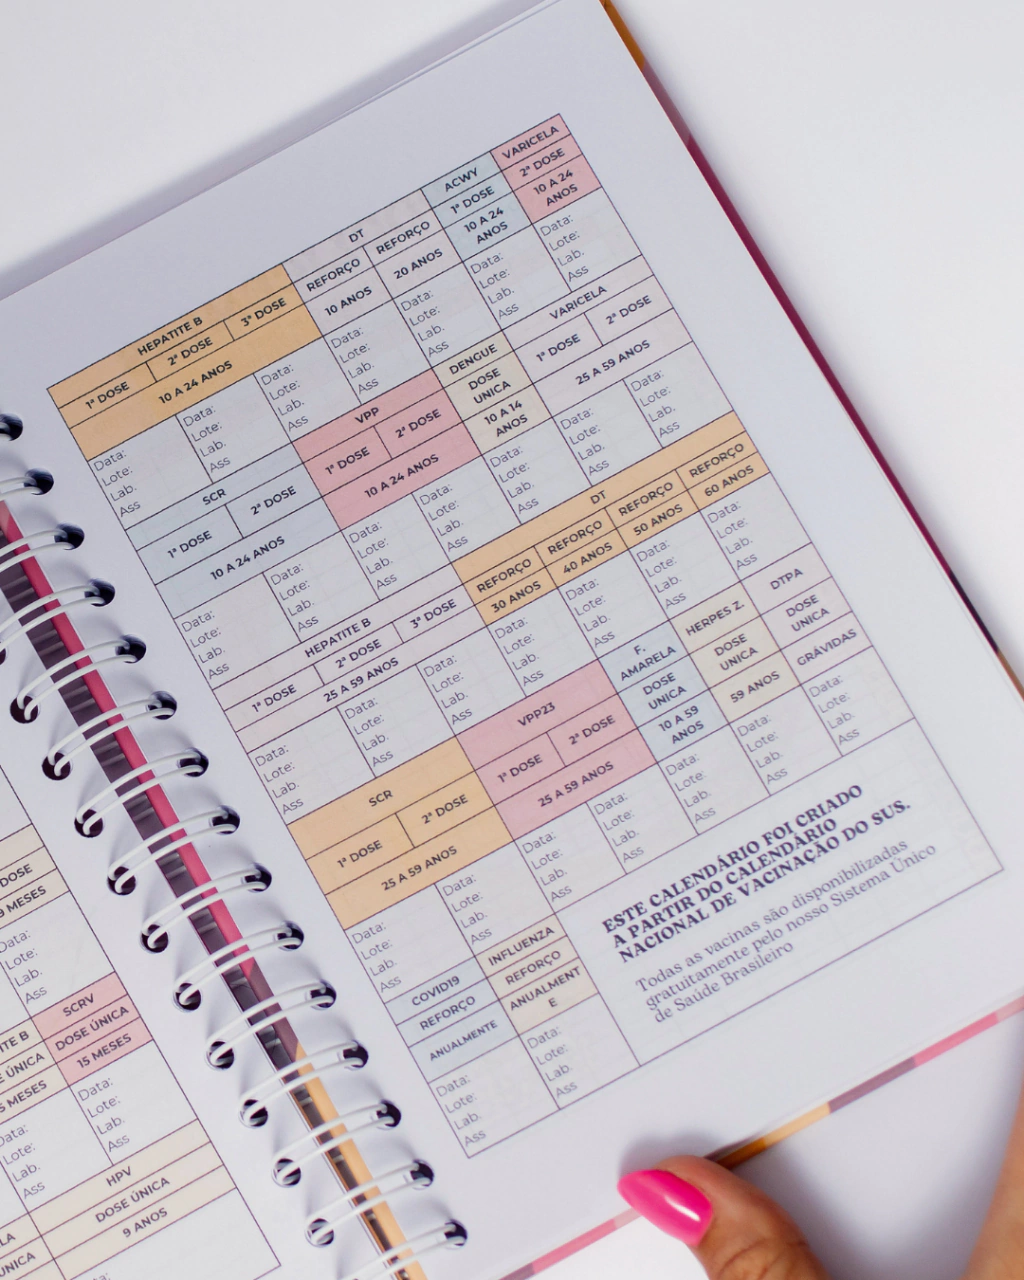 HEPATITE B
1ª DOSE
2ª DOSE
3ª DOSE
10 A 24 ANOS
DT
REFORÇO
REFORÇO
10 ANOS
20 ANOS
ACWY
1ª DOSE
10 A 24
ANOS
VARICELA
2ª DOSE
10 A 24
ANOS
Data:
Lote:
Lab.
Ass
Data:
Lote:
Lab.
Ass
Data:
Lote:
Lab.
Ass
Data:
Lote:
Lab.
Ass
Data:
Lote:
Lab.
Ass
Data:
Lote:
Lab.
Ass
Data:
Lote:
Lab.
Ass
SCR
1ª DOSE
2ª DOSE
10 A 24 ANOS
VPP
1ª DOSE
2ª DOSE
10 A 24 ANOS
DENGUE
DOSE
UNICA
10 A 14
ANOS
VARICELA
1ª DOSE
2ª DOSE
25 A 59 ANOS
Data:
Lote:
Lab.
Ass
Data:
Lote:
Lab.
Ass
Data:
Lote:
Lab.
Ass
Data:
Lote:
Lab.
Ass
Data:
Lote:
Lab.
Ass
Data:
Lote:
Lab.
Ass
Data:
Lote:
Lab.
Ass
HEPATITE B
1ª DOSE
2ª DOSE
3ª DOSE
25 A 59 ANOS
DT
REFORÇO
REFORÇO
REFORÇO
REFORÇO
30 ANOS
40 ANOS
50 ANOS
60 ANOS
Data:
Lote:
Lab.
Ass
Data:
Lote:
Lab.
Ass
Data:
Lote:
Lab.
Ass
Data:
Lote:
Lab.
Ass
Data:
Lote:
Lab.
Ass
Data:
Lote:
Lab.
Ass
Data:
Lote:
Lab.
Ass
SCR
1ª DOSE
2ª DOSE
25 A 59 ANOS
VPP23
1ª DOSE
2ª DOSE
25 A 59 ANOS
F.
AMARELA
DOSE
UNICA
10 A 59
ANOS
HERPES Z.
DOSE
UNICA
59 ANOS
DTPA
DOSE
UNICA
GRÁVIDAS
Data:
Lote:
Lab.
Ass
Data:
Lote:
Lab.
Ass
Data:
Lote:
Lab.
Ass
Data:
Lote:
Lab.
Ass
Data:
Lote:
Lab.
Ass
Data:
Lote:
Lab.
Ass
Data:
Lote:
Lab.
Ass
COVID19
REFORÇO
ANUALMENTE
INFLUENZA
REFORÇO
ANUALMENT
E
Data:
Lote:
Lab.
Ass
Data:
Lote:
Lab.
Ass
ESTE CALENDÁRIO FOI CRIADO
A PARTIR DO CALENDÁRIO
NACIONAL DE VACINAÇÃO DO SUS.
Todas as vacinas são disponibilizadas
gratuitamente pelo nosso Sistema Único
de Saúde Brasileiro
DOSE
MESES
Data:
Lote:
Lab.
Ass
B
ÚNICA
MESES
SCRV
DOSE ÚNICA
15 MESES
Lote:
Lab.
Ass
Data:
Lote:
Lab.
Ass
HPV
DOSE ÚNICA
9 ANOS